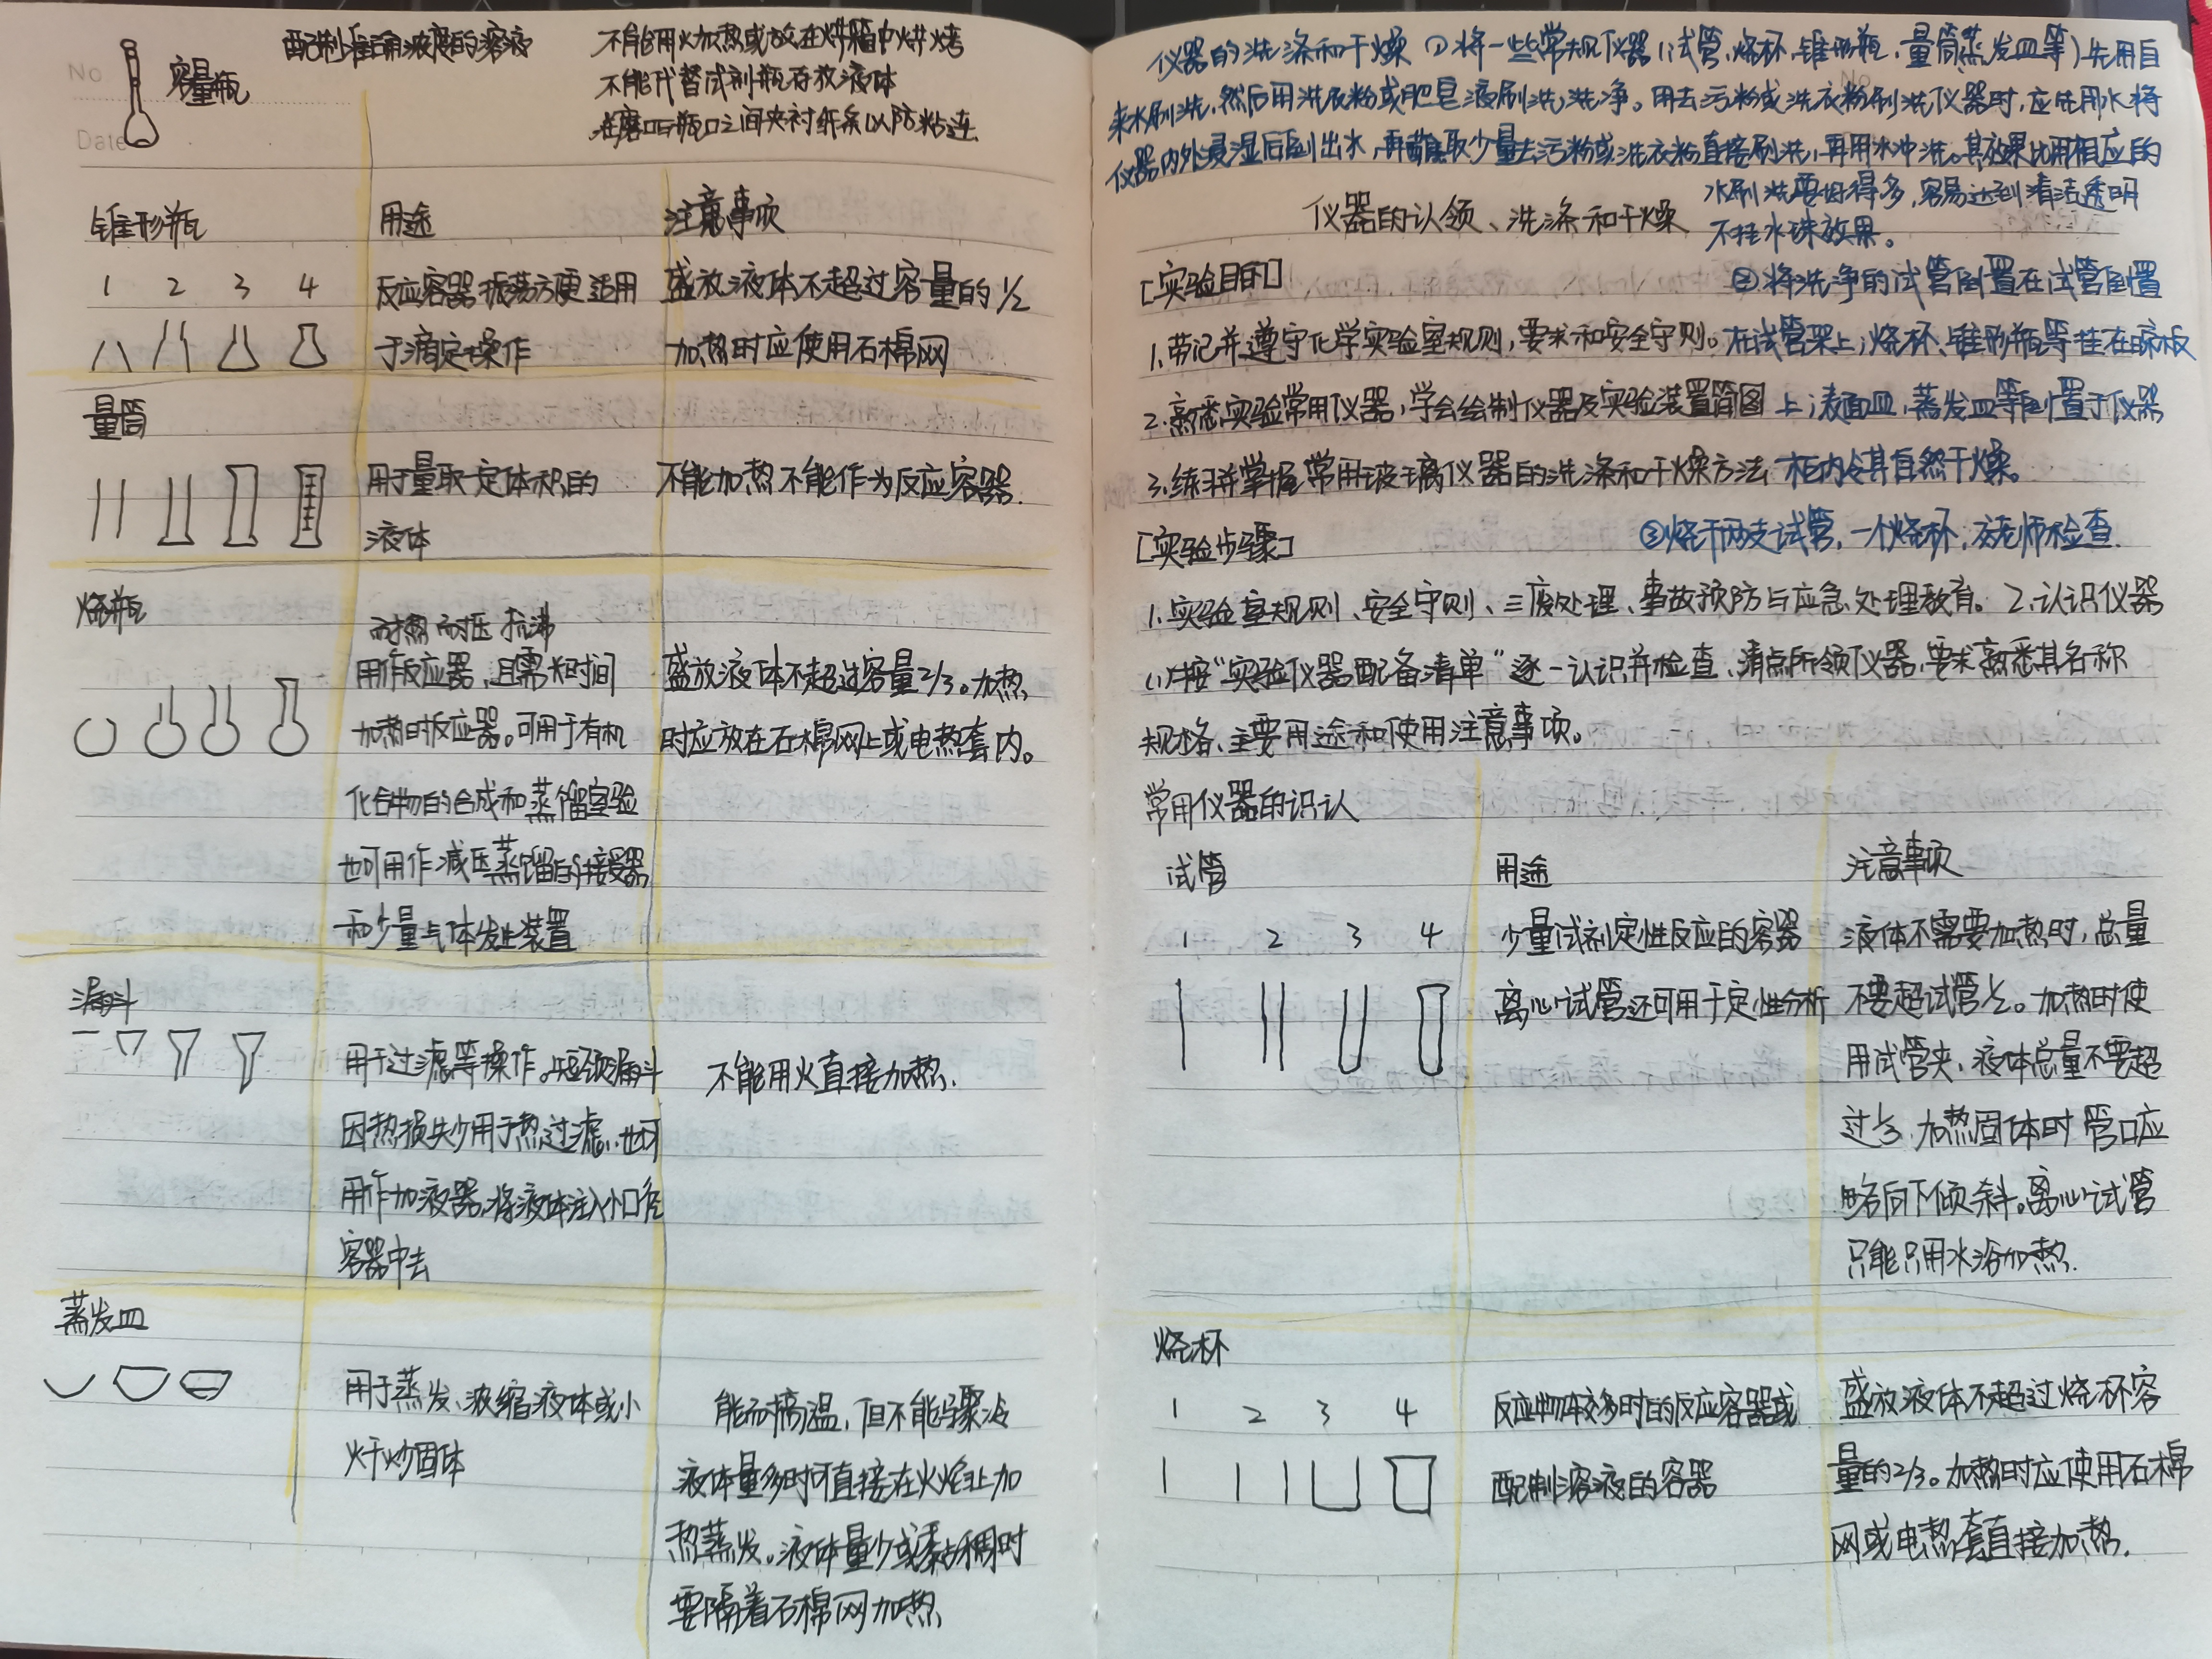 No
Date
容量瓶
配制准确浓度的溶液
不能用火加热或放在烘箱中烘烤
不能代替试剂瓶存放液体
在磨口与瓶口之间夹衬纸条以防粘连
锥形瓶 用途 注意事项
1 2 3 4 反应容器 振荡方便 适用 盛放液体不超过容量的1/2
于滴定操作 加热时应使用石棉网
量筒
用于量取一定体积的 不能加热不能作为反应容器.
液体
烧瓶
耐热 耐压 抗沸
用作反应器,且需长时间 盛放液体不超过容量2/3。加热
加热时反应器。可用于有机 时应放在石棉网上或电热套内。
化合物的合成和蒸馏室验
也可用作减压蒸馏的接受器
和少量气体发生装置
漏斗
用于过滤等操作。短颈漏斗 不能用火直接加热.
因热损失少用于热过滤.也可
用作加液器.将液体注入小口径
容器中去
蒸发皿
用于蒸发、浓缩液体或小 能耐高温,但不能骤冷
火干炒固体 液体量多时可直接在火焰上加
热蒸发。液体量少或黏稠时
要隔着石棉网加热
仪器的洗涤和干燥 ①将一些常规仪器(试管,烧杯,锥形瓶,量筒蒸发皿等)先用自
来水刷洗,然后用洗衣粉或肥皂液刷洗,洗净。用去污粉或洗衣粉刷洗仪器时,应先用水将
仪器内外浸湿后倒出水,再蘸取少量去污粉或洗衣粉直接刷洗,再用水冲洗。其效果比用相应的
水刷洗要好得多,容易达到清洁透明
仪器的认领、洗涤和干燥 不挂水珠效果。
[实验目的] ②将洗净的试管倒置在试管倒置
1.带记并遵守化学实验室规则,要求和安全守则。在试管架上;烧杯、锥形瓶等挂在晾板
2.熟悉实验常用仪器,学会绘制仪器及实验装置简图 上;表面皿,蒸发皿等倒置于仪器
3.练习并掌握常用玻璃仪器的洗涤和干燥方法 柜内令其自然干燥。
[实验步骤] ③烧干两支试管,一个烧杯,交老师检查.
1.实验室规则、安全守则、三废处理、事故预防与应急处理教育。2.认识仪器
(1)按“实验仪器配备清单”逐一认识并检查,清点所领仪器,要求熟悉其名称
规格、主要用途和使用注意事项。
常用仪器的识认
试管 用途 注意事项
1 2 3 4 少量试剂定性反应的容器 液体不需要加热时,总量
离心试管还可用于定性分析 不要超试管½。加热时使
用试管夹,液体总量不要超
过⅓.加热固体时管口应
略向下倾斜。离心试管
只能只用水浴加热.
烧杯
1 2 3 4 反应物体较多时的反应容器或 盛放液体不超过烧杯容
配制溶液的容器 量的2/3。加热时应使用石棉
网或电热套直接加热.